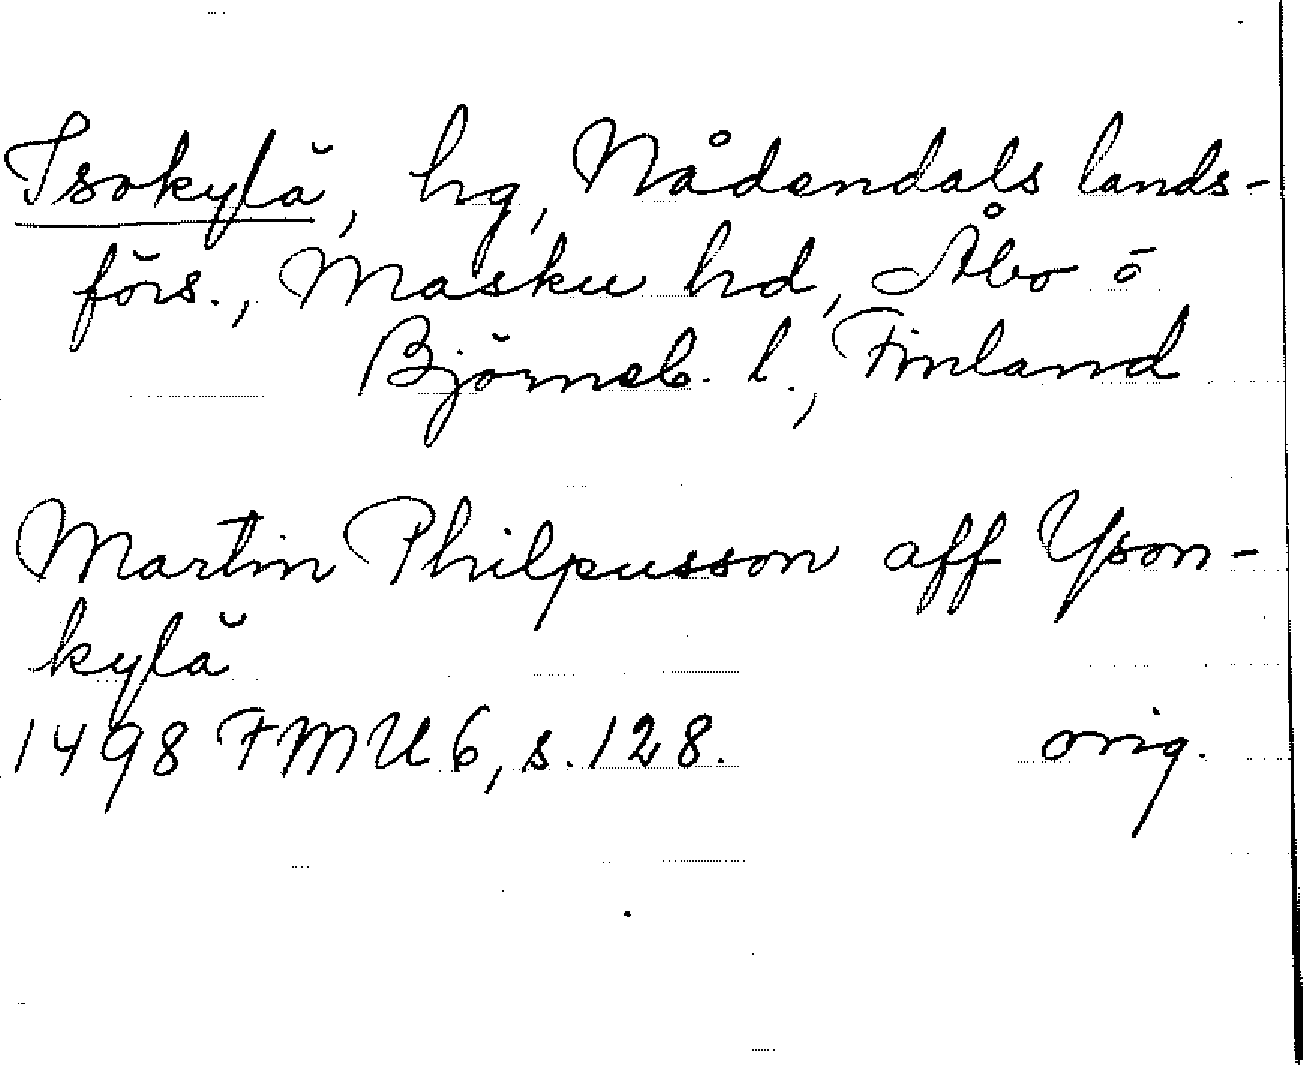 Isokylä, hg, Nådendals lands-
förs., Masku hd, Åbo ō
Björneb. l., Finland
Martin Philpusson aff Yson-
kylä
1498 FMU 6, s. 128. orig.